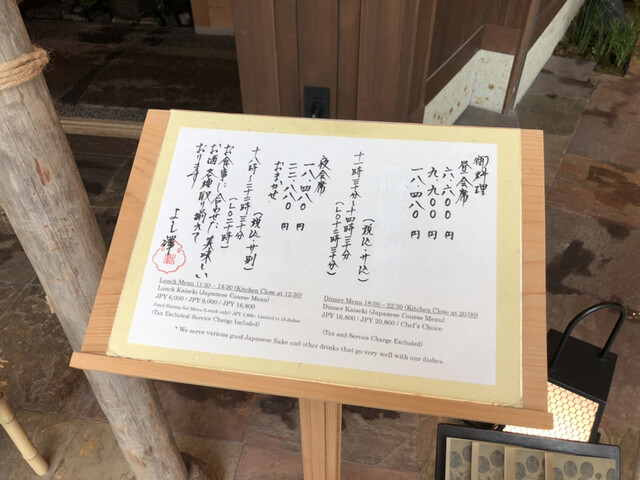 御料理
昼会席
六.六〇〇 円
九.九〇〇 円
一八.四八〇 円
(税込・サ込)
十一時三十分〜十四時三十分
(LO十二時三十分)
夜会席
一八.四八〇 円
二二.八八〇 円
おまかせ
(税込・サ別)
十八時〜二十二時三十分
(LO二十時)
お食事に合わせた美味しい
お酒各種取り揃えて
おります
よし澤
Lunch Menu 11:30 – 14:30 (Kitchen Close at 12:30)
Lunch Kaiseki (Japanese Course Menu)
JPY 6,000 / JPY 9,000 / JPY 16,800
(Tax Excluded/ Service Charge Included)
Dinner Menu 18:00 – 22:30 (Kitchen Close at 20:00)
Dinner Kaiseki (Japanese Course Menu)
JPY 16,800 / JPY 20,800 / Chef's Choice
(Tax and Service Charge Excluded)
* We serve various good Japanese Sake and other drinks that go very well with our dishes.